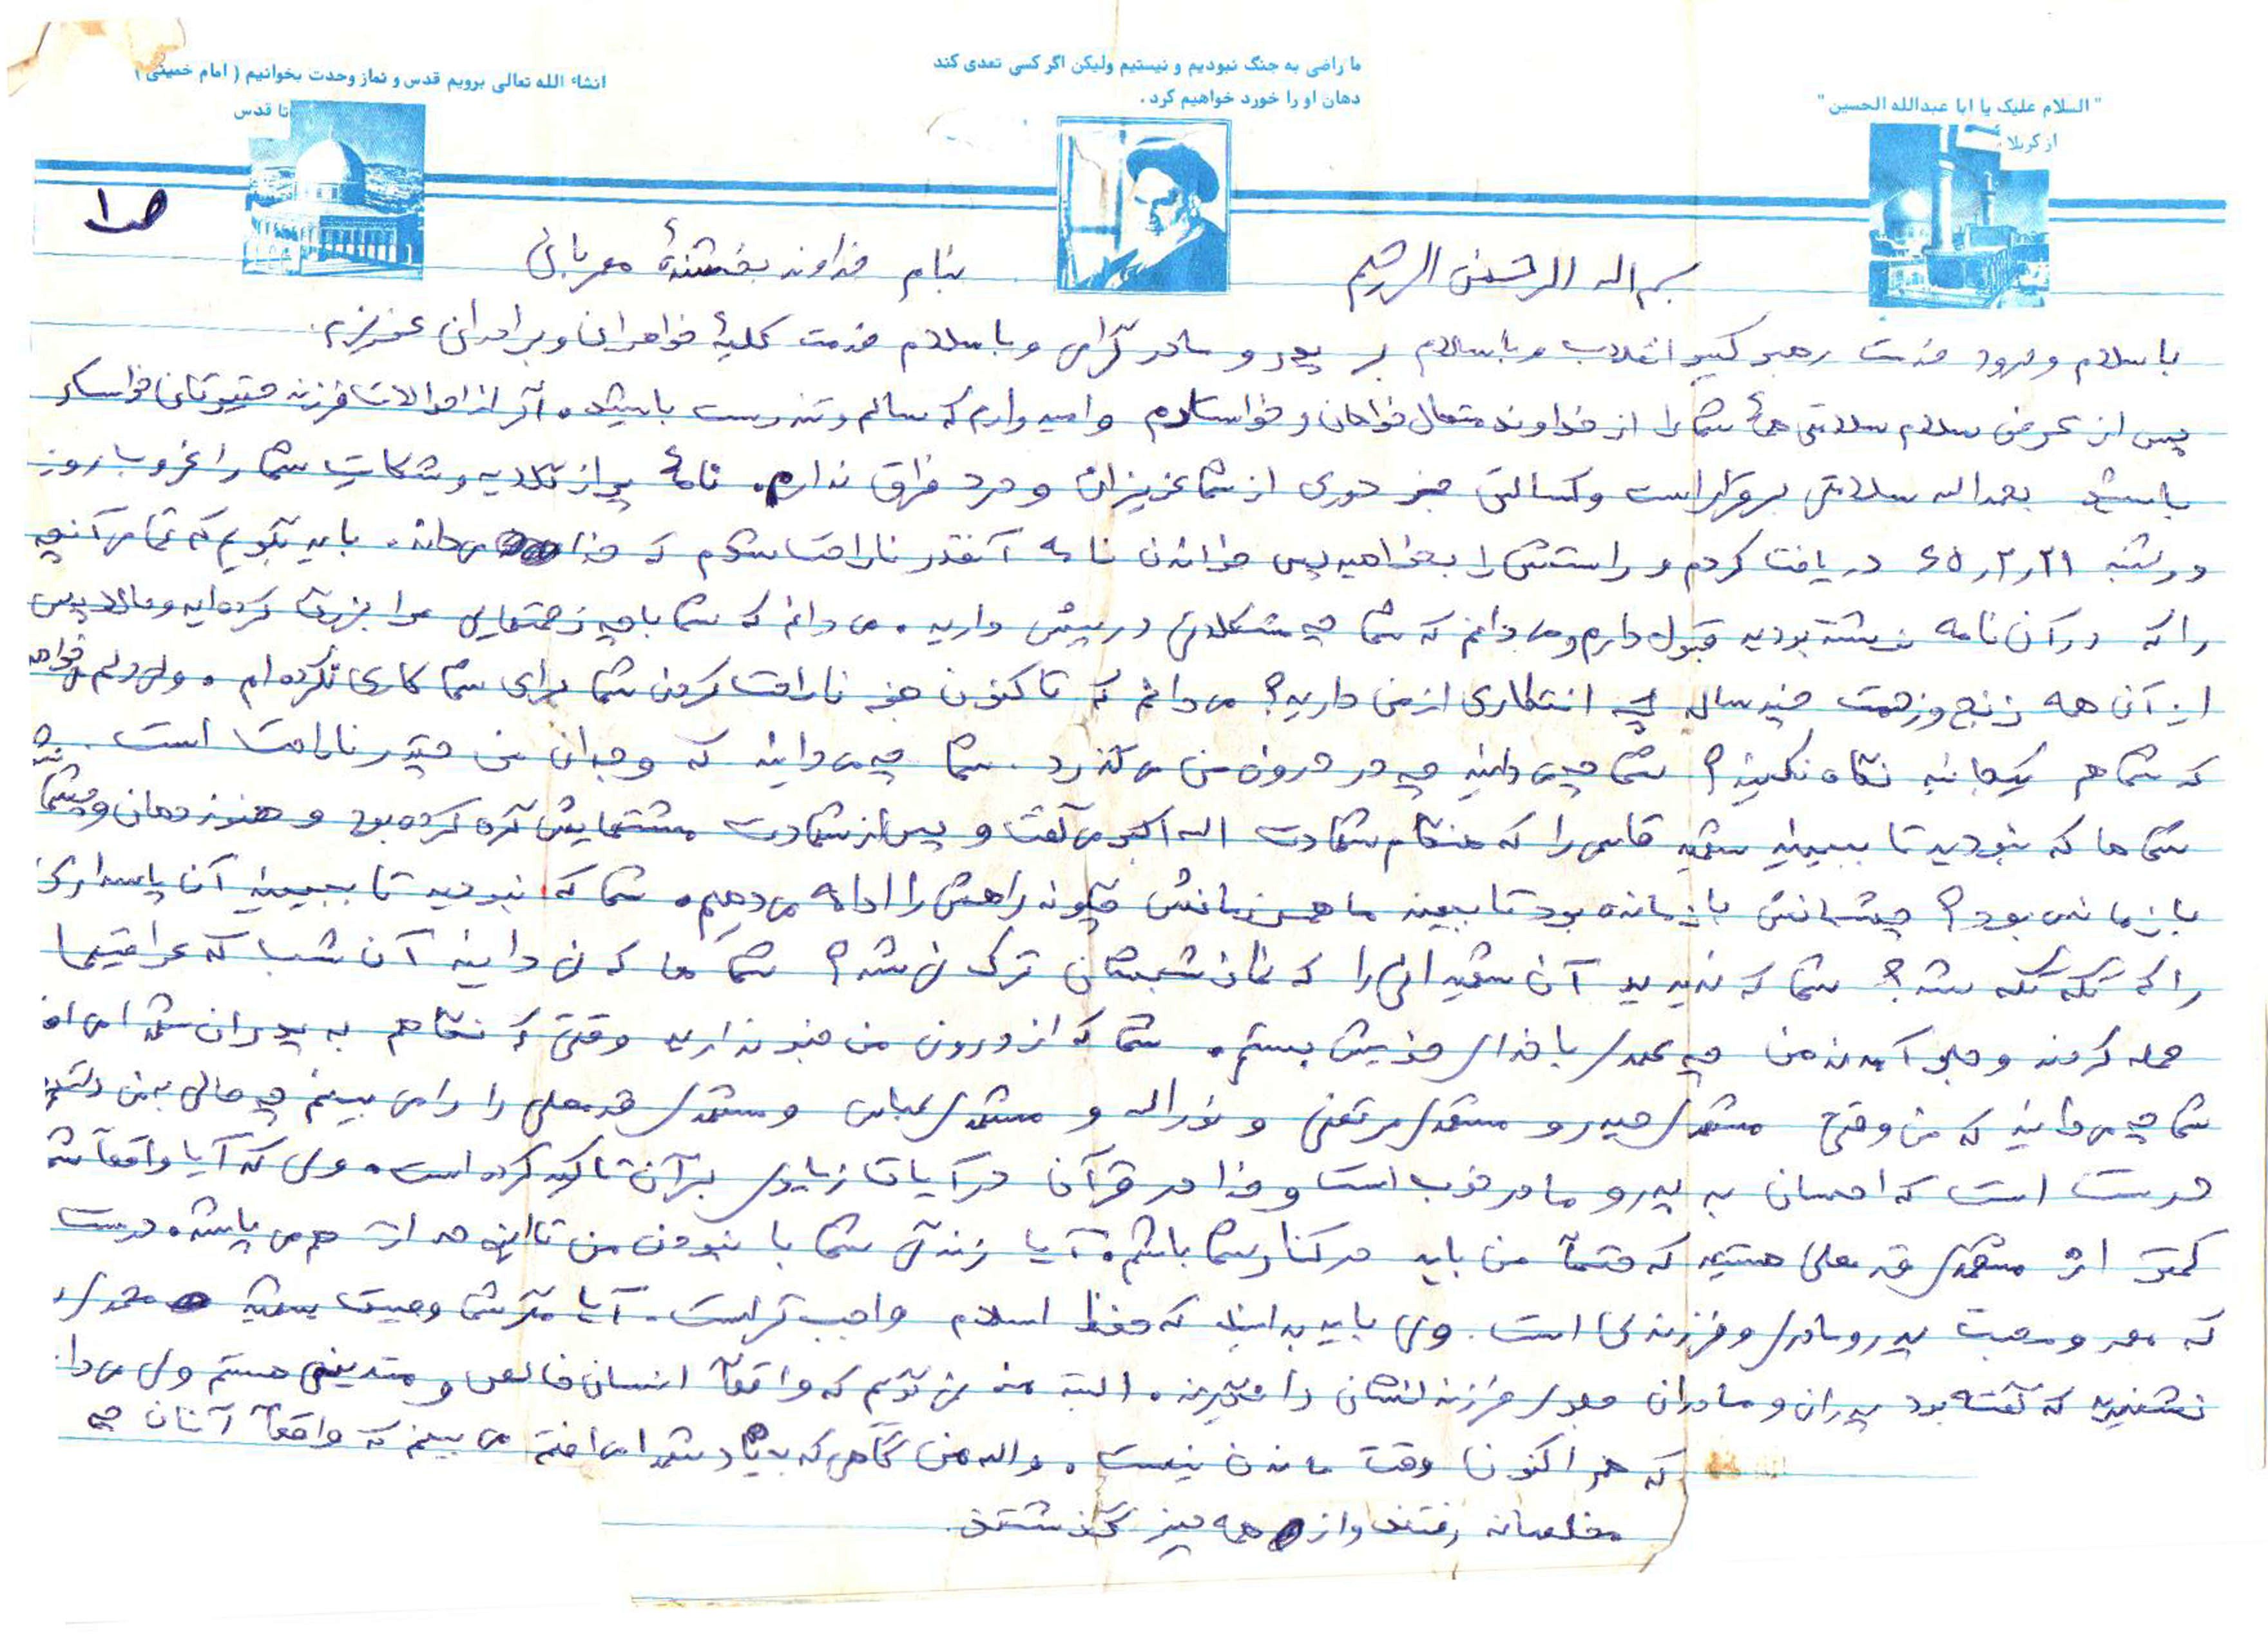 انشاء الله تعالی برویم قدس و نماز وحدت بخوانیم ( امام خمینی )
تا قدس
ما راضی به جنگ نبودیم و نیستیم ولیکن اگر کسی تعدی کند
دهان او را خورد خواهیم کرد .
" السلام علیک یا ابا عبدالله الحسین "
از کربلا
ص ۱
بسم اله الرحمن الرحیم بنام خداوند بخشندهٔ مهربان
با سلام و درود خدمت رهبر کبیر انقلاب و با سلام بر پدر و مادر گرامی و با سلام خدمت کلیهٔ خواهران و برادران عزیزم.
پس از عرض سلام سلامتی همهٔ شما را از خداوند متعال خواهان و خواستارم و امیدوارم که سالم و تندرست باشید. اگر از احوالات فرزند حقیرتان خواستار
باشید بحمداله سلامتی برقرار است و کسالتی جز دوری از شما عزیزان و درد فراق ندارم. نامهٔ پر از گلایه و شکایت شما را غروب روز
دوشنبه ۶۵٫۲٫۲۱ دریافت کردم و راستش را بخواهید پس خواندن نامه آنقدر ناراحت شدم که خدا می‌داند. باید بگویم که تمامی آنچه
را که در آن نامه نوشته بودید قبول دارم و می‌دانم که شما چه مشکلاتی در پیش دارید. می‌دانم که شما با چه زحمتهایی مرا بزرگ کرده‌اید و حالا پس
از آن همه رنج و زحمت چند ساله چه انتظاری از من دارید؟ می‌دانم که تا کنون جز ناراحت کردن شما برای شما کاری نکرده‌ام. ولی دلم می‌خواهد
که شما هم یکجانبه نگاه نکنید؟ شما چه می‌دانید چه در درون من می‌گذرد. شما چه می‌دانید که وجدان من چقدر ناراحت است.
شماها که نبودید تا ببینید شهید قاسمی را که هنگام شهادت اله اکبر می‌گفت و پس از شهادت مشتهایش گره کرده بود و هنوز دهان و چشمها
باز مانده بود؟ چشمانش باز مانده بود تا ببیند ما همرزمانش چگونه راهش را ادامه می‌دهیم. شما که نبودید تا ببینید آن پاسداری
را که تکه تکه شد؟ شما که ندیدید آن شهیدانی را که نماز شبشان ترک نمی‌شد؟ شما ها که نمی‌دانید آن شب که عراقیها
حمله کردند و جلو آمدند من چه عهدی با خدای خویش بستم. شما که از درون من خبر ندارید وقتی که نگاهم به پدران شهدا می‌افتد
شما چه می‌دانید که من وقتی مشهدی حیدر و مشهدی مرتضی و نوراله و مشهدی عباس و مشهدی قدمعلی را می‌بینم چه حالی به من دست
درست است که احسان به پدر و مادر خوب است و خدا در قرآن در آیات زیادی بر آن تاکید کرده است. ولی که آیا واقعاً شما
کمتر از مشهدی قدمعلی هستید که حتماً من باید در کنار شما باشم. آیا زندگی شما با نبودن من تا این حد از هم می‌پاشد. درست
که مهر و محبت پدر و مادری و فرزندی است. ولی باید بدانید که حفظ اسلام واجب تر است. آیا مگر شما وصیت شهید محمدی را
نشنیدید که گفته بود پدران و مادران جلوی فرزندانشان را نگیرند. البته من نمی‌گویم که واقعاً انسان خالص و متدینی هستم ولی می‌دانم
که هم اکنون وقت ماندن نیست. واله من گاهی که به یاد شهدا می‌افتم می‌بینم که واقعاً آنان چه
مخلصانه رفتند و از همه چیز گذشتند.